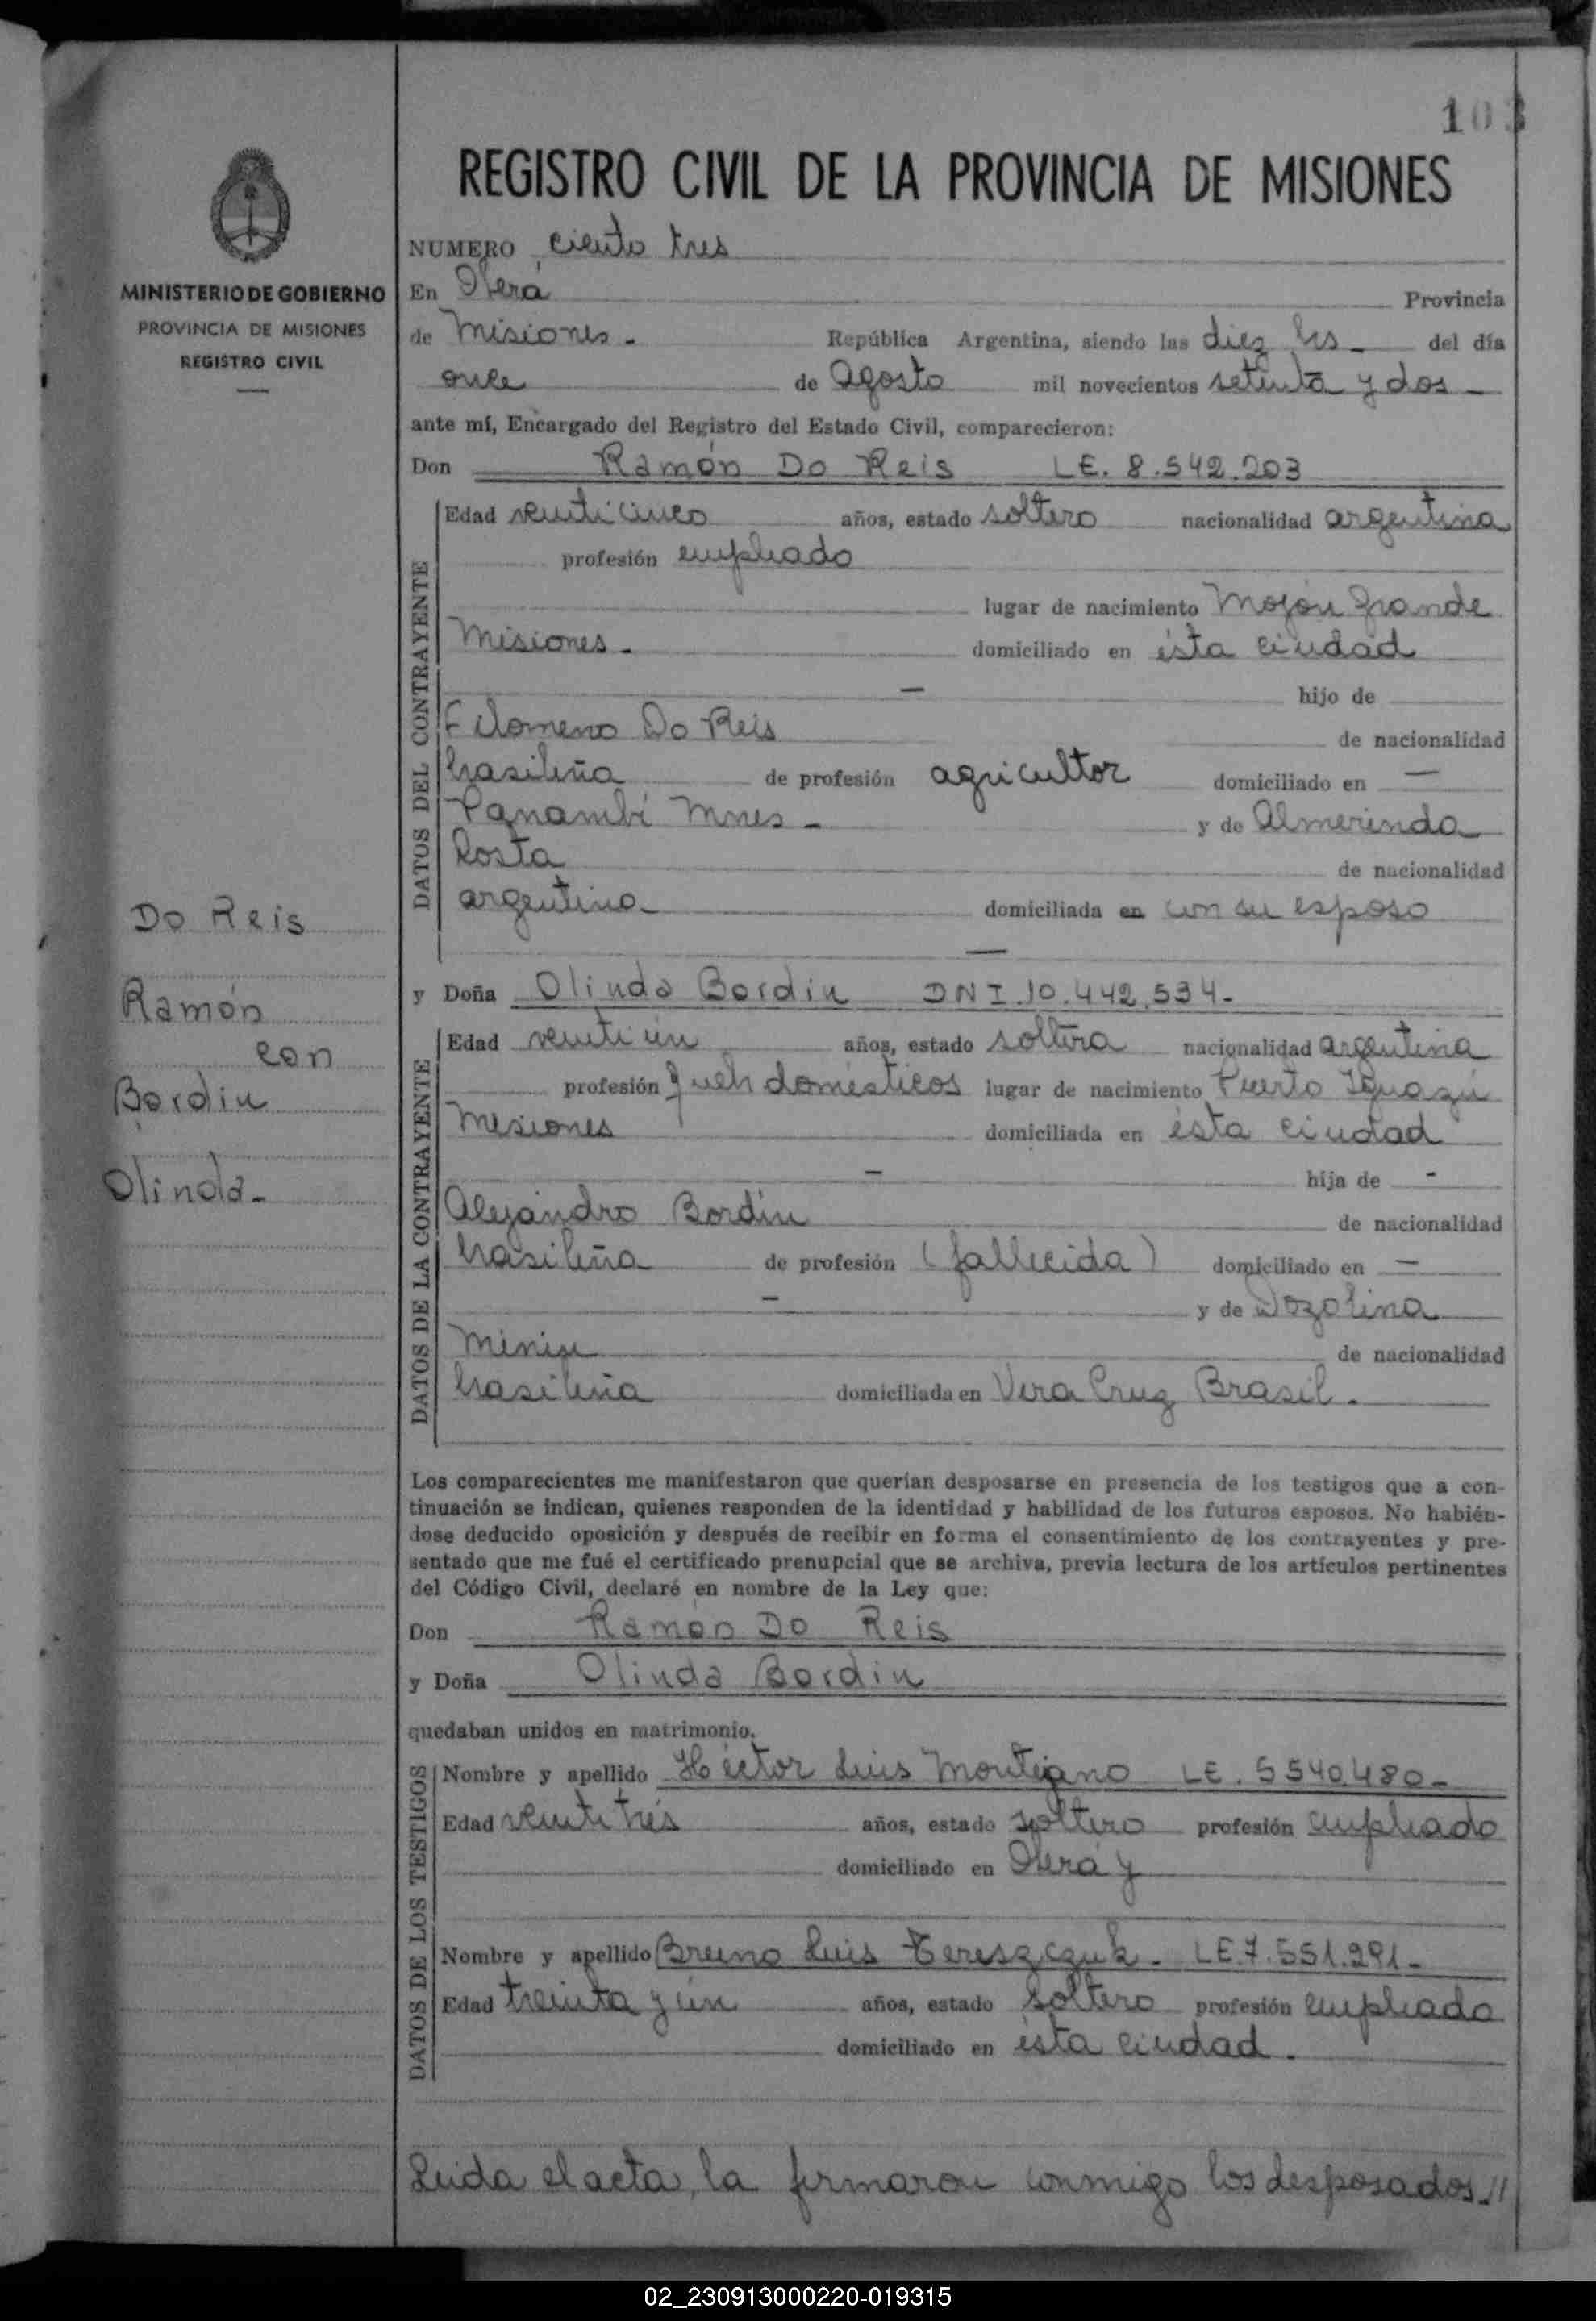 103
REGISTRO CIVIL DE LA PROVINCIA DE MISIONES
MINISTERIO DE GOBIERNO
PROVINCIA DE MISIONES
REGISTRO CIVIL
NUMERO ciento tres
En Oberá Provincia
de Misiones. República Argentina, siendo las diez hs del día
once de Agosto mil novecientos setenta y dos
ante mí, Encargado del Registro del Estado Civil, comparecieron:
Don Ramón Do Reis LE. 8.542.203
DATOS DEL CONTRAYENTE
Edad veinticinco años, estado soltero nacionalidad argentina
profesión empleado
lugar de nacimiento Mojón Grande
Misiones. domiciliado en ésta ciudad
— hijo de
Filomeno Do Reis de nacionalidad
brasileña de profesión agricultor domiciliado en —
Panambí Mnes - y de Almerinda
Costa de nacionalidad
argentina domiciliada en con su esposo
—
Do Reis
Ramón
con
Bordin
Olinda-
y Doña Olinda Bordin DNI.10.442.534-
DATOS DE LA CONTRAYENTE
Edad veintiún años, estado soltera nacionalidad argentina
profesión queh domésticos lugar de nacimiento Puerto Iguazú
Misiones domiciliada en ésta ciudad
— hija de -
Alejandro Bordin de nacionalidad
brasileña de profesión (fallecida) domiciliado en —
— y de Dozolina
de nacionalidad
brasileña domiciliada en Vera Cruz Brasil.
Los comparecientes me manifestaron que querían desposarse en presencia de los testigos que a con-
tinuación se indican, quienes responden de la identidad y habilidad de los futuros esposos. No habién-
dose deducido oposición y después de recibir en forma el consentimiento de los contrayentes y pre-
sentado que me fué el certificado prenupcial que se archiva, previa lectura de los artículos pertinentes
del Código Civil, declaré en nombre de la Ley que:
Don Ramón Do Reis
y Doña Olinda Bordin
quedaban unidos en matrimonio.
DATOS DE LOS TESTIGOS
Nombre y apellido Héctor Luis Montejano LE. 5540.480-
Edad veintitrés años, estado soltero profesión empleado
domiciliado en Oberá y
Nombre y apellido Bruno Luis Tereszczuk - LE.7.551.291-
Edad treinta y ún años, estado soltero profesión empleado
domiciliado en ésta ciudad.
Leida el acta, la firmaron conmigo los desposados.//
02_230913000220-019315